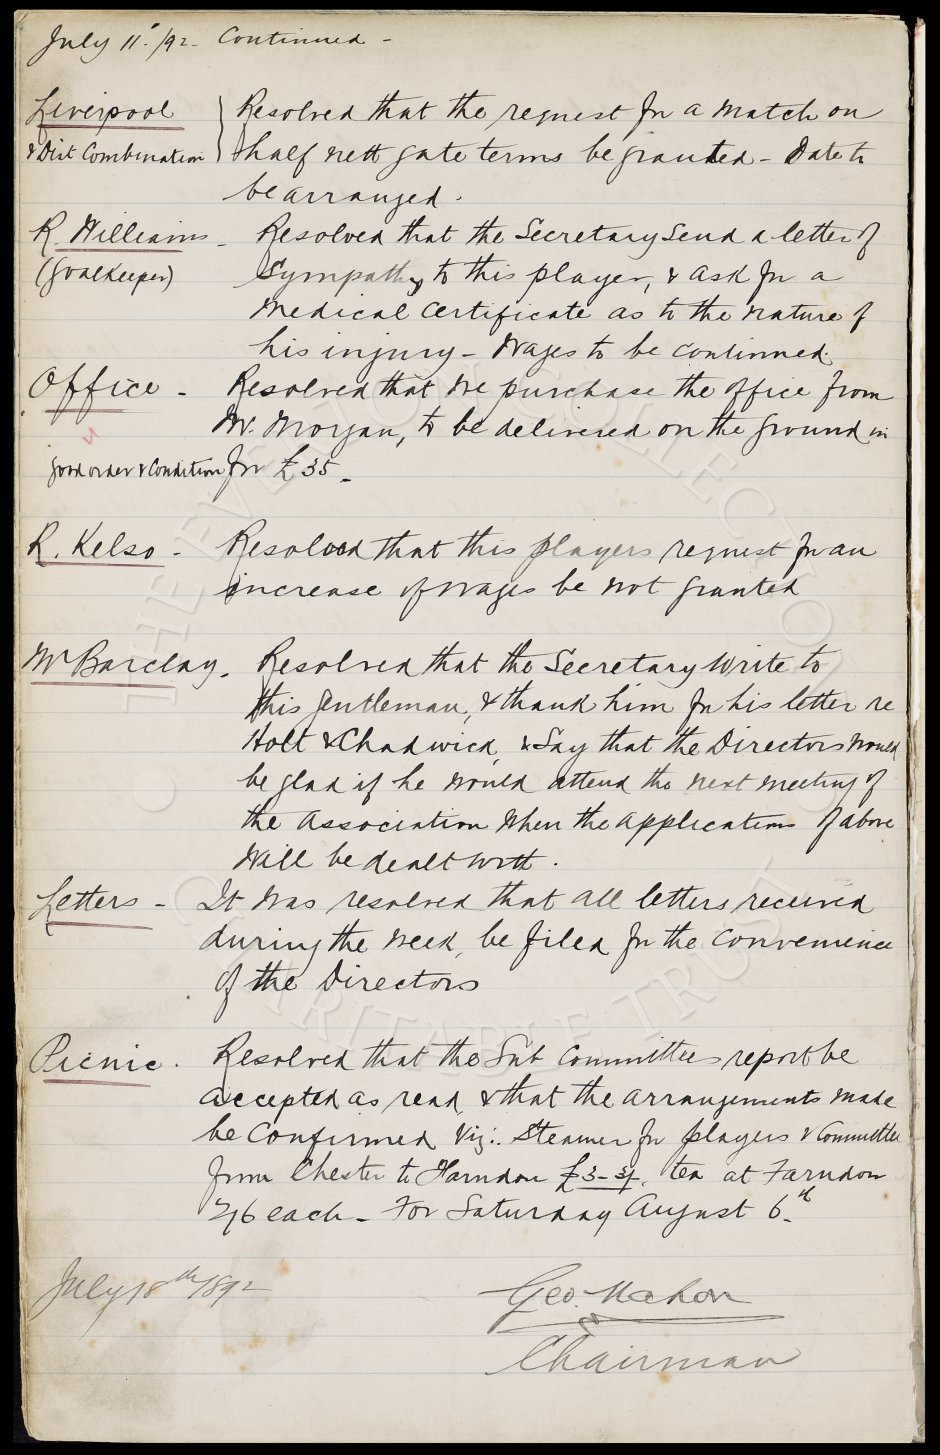 July 11th/92 - Continued -
Liverpool
& Dist Combination
Resolved that the request for a match on
half nett gate terms be granted - Date to
be arranged.
R. Williams -
(Goalkeeper)
Resolved that the Secretary send a letter of
Sympathy to this player, & ask for a
Medical Certificate as to the nature of
his injury - Wages to be continued.
Office - Resolved that we purchase the office from
Mr. Morgan, to be delivered on the ground in
good order & condition for £35 -
R. Kelso - Resolved that this players request for an
increase of wages be not granted
Mr Barclay. Resolved that the Secretary write to
this gentleman, & thank him for his letter re
Holt & Chadwick, & say that the Directors would
be glad if he would attend the next meeting of
the Association when the applications of above
will be dealt with.
Letters - It was resolved that all letters received
during the week, be filed for the convenience
of the Directors
Picnic. Resolved that the Sub Committees report be
accepted as read, & that the arrangements made
be confirmed Viz:. Steamer for players & Committee
from Chester to Farndon £3-3/-. tea at Farndon
2/6 each - For Saturday August 6th.
July 18th 1892
Geo. Mahon
Chairman
© THE EVERTON COLLECTION
CHARITABLE TRUST